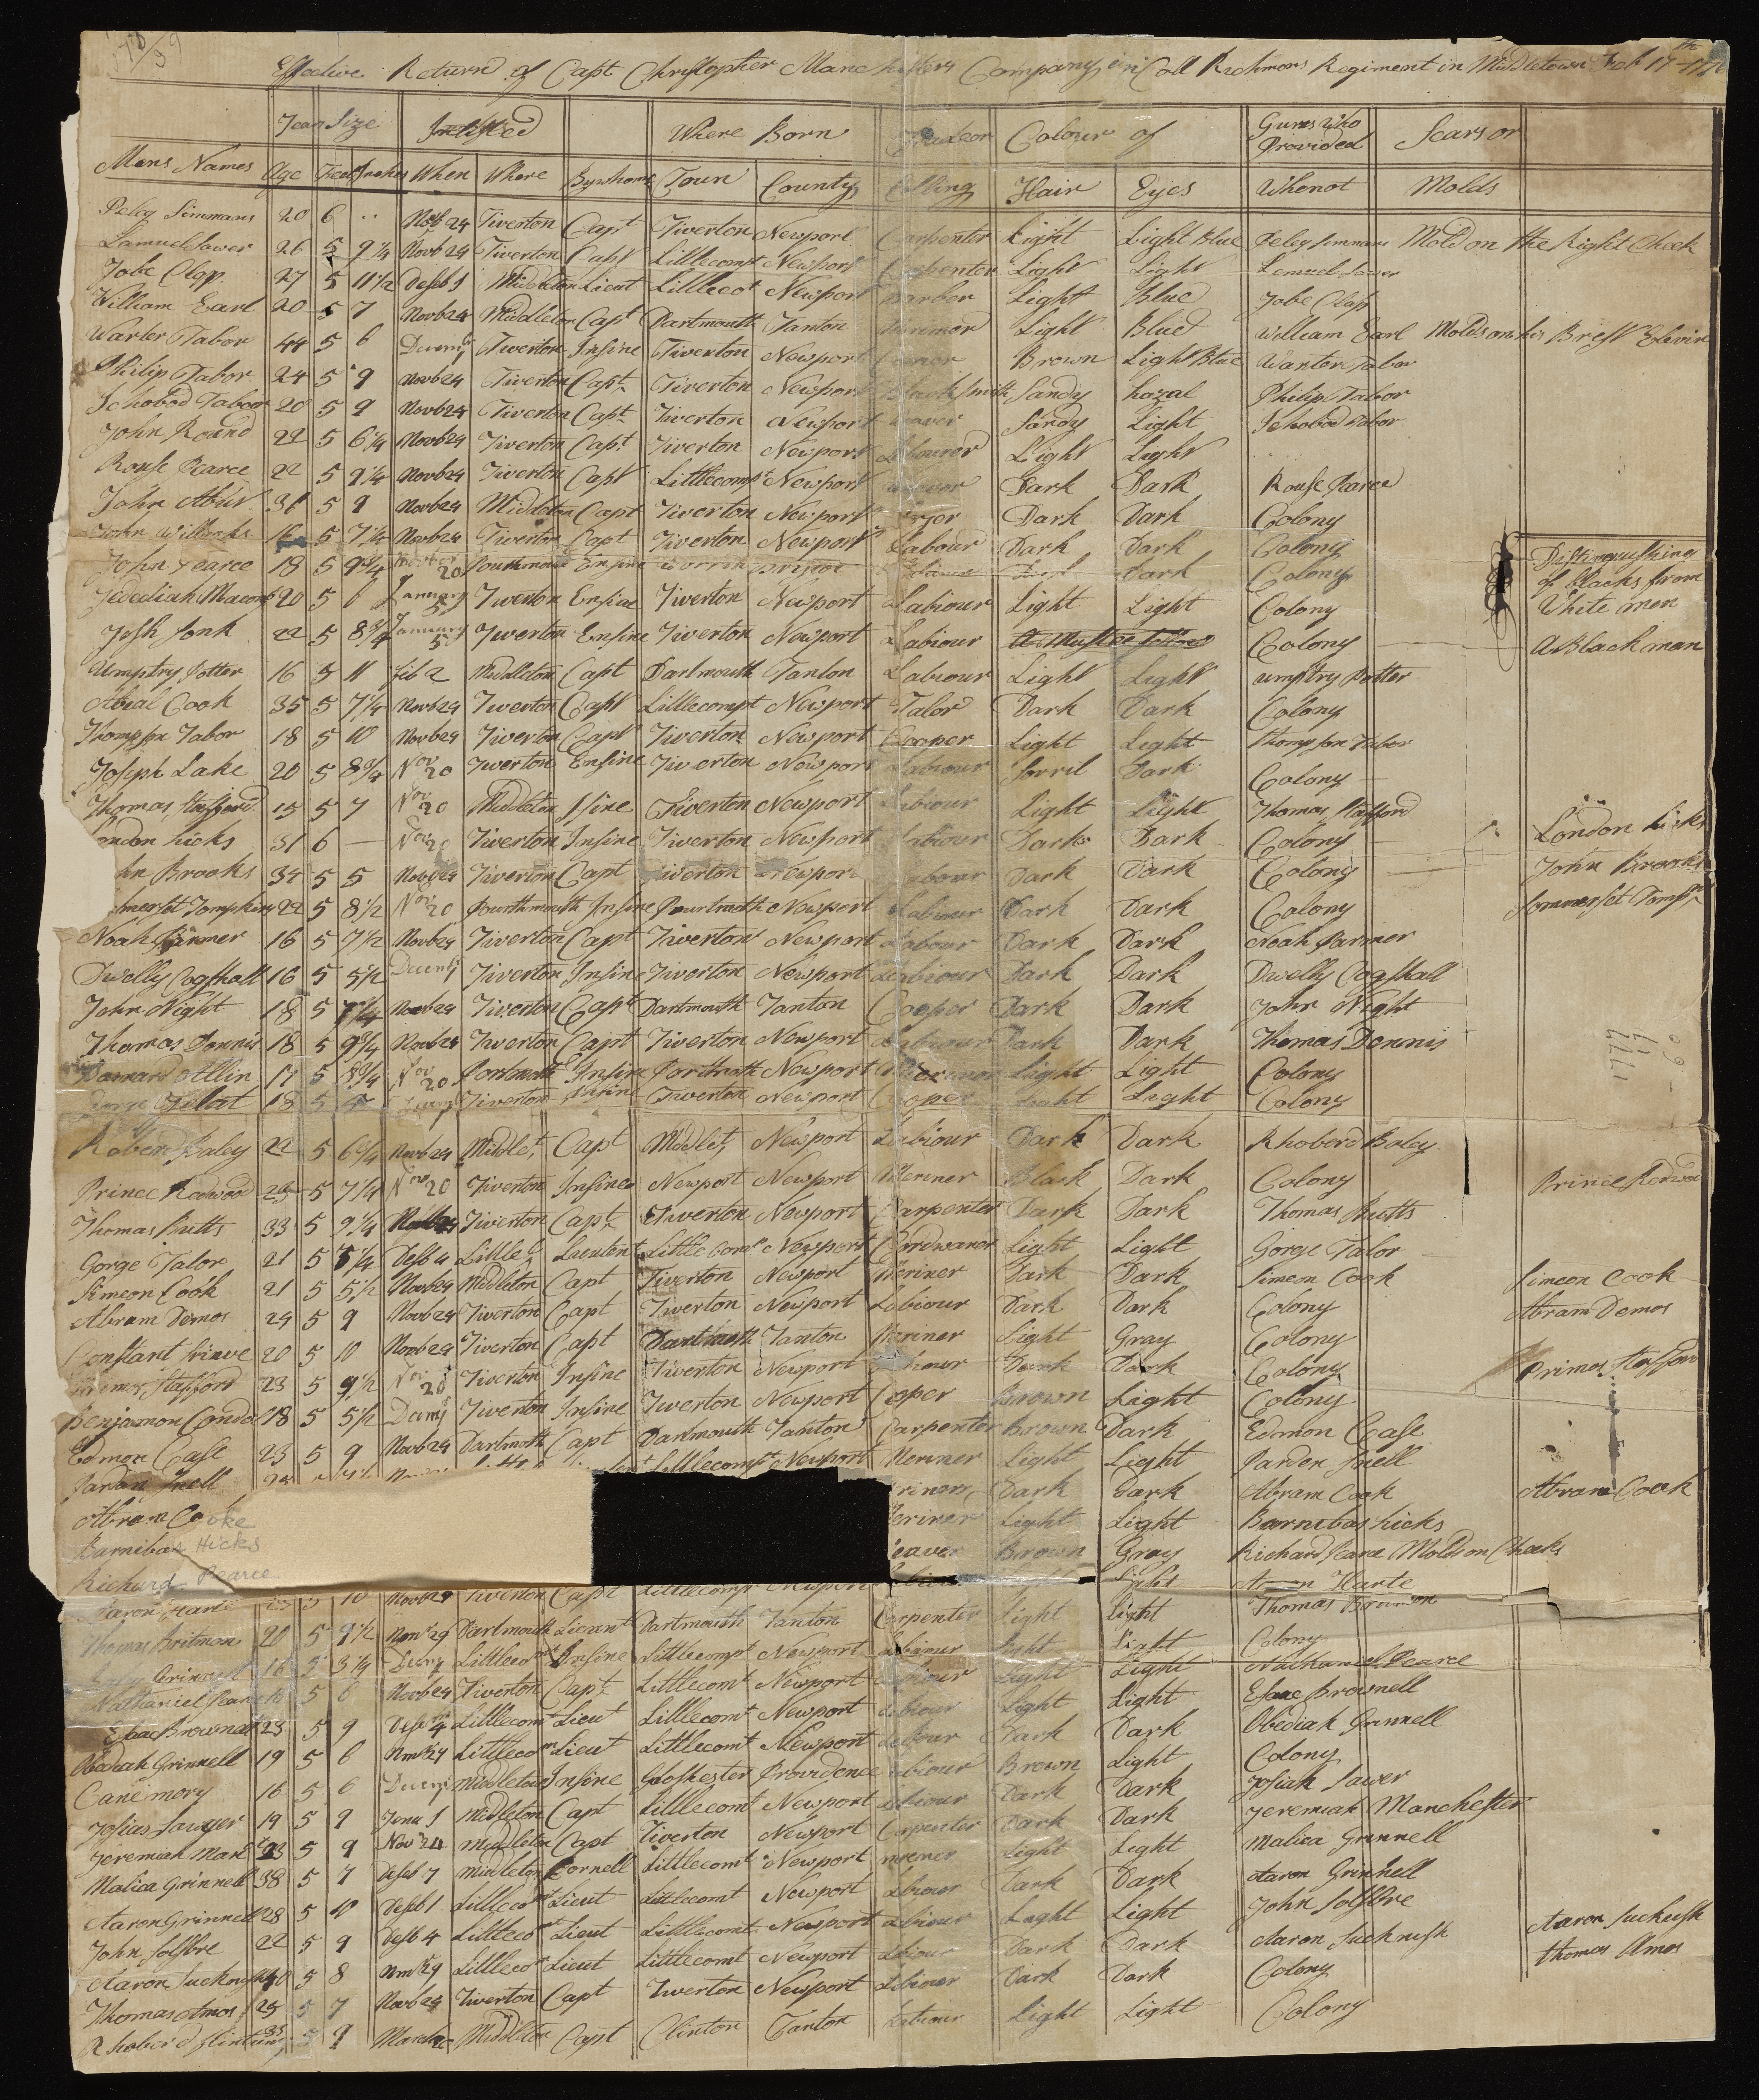 Effective Return of Capt Christopher Manchesters Company in Coll Richmons Regiment in Middletown Feb 17th
Years Size Inlisted Where Born Trade or Colour of Guns who Provided Scars or
Mens Names Age Feet Inches When Where By whom Town County Calling Hair Eyes Whenot Molds
Peleg Simmans 20 6 .. Novb 24 Tiverton Capt Tiverton Newport Carpenter Light Light Blue Peleg Simmans Mold on the Right Cheek
Lamuel Sawer 26 5 9 1/4 Novb 24 Tiverton Capt Littlecompt Newport Carpenter Light Light Lemuel Sawer
Jobe Clap 27 5 11 1/2 Desb 1 Midelton Lieut Littlecot Newport Barbor Light Blue Jobe Clap
William Earl 20 5 7 Novb 24 Midelton Capt Dartmouth Tanton Light Blue William Earl Molds on his Brest
Warter Tabor 44 5 6 Tiverton Insine Tiverton Newport Brown Light Blue Warter Tabor
Philip Tabor 24 5 9 Novb 24 Tiverton Capt Tiverton Newport Black Smith Sandy hazal Philip Tabor
Ichobod Tabor 20 5 9 Novb 24 Tiverton Capt Tiverton Newport weaver Sandy Light Ichobod Tabor
John Round 22 5 6 1/4 Novb 24 Tiverton Capt Tiverton Newport Labourer Light Light
Rouse Pearce 22 5 9 1/4 Novb 24 Tiverton Capt Littlecompt Newport Dark Dark Rouse Pearce
John 31 5 9 Novb 24 Midelton Capt Tiverton Newport Dark Dark Colony
John Willcoks 16 5 7 1/4 Novb 24 Tiverton Capt Tiverton Newport Labour Dark Dark Colony
John Pearce 18 5 9 3/4 20 Pourthmouth Ensine Dark Colony Distinguishing of blacks from White men
Jedediah Macomb 20 5 6 January 5 Tiverton Ensine Tiverton Newport Labiour Light Light Colony
Josh Sonk 22 5 8 3/4 January 5 Tiverton Ensine Tiverton Newport Labiour Colony A Black man
Umptry Potter 16 5 11 Feb 2 Middleton Capt Dartmouth Tanton Labiour Light Light umptry Potter
Abial Cook 35 5 7 1/4 Novb 24 Tiverton Capt Littlecompt Newport Talor Dark Dark Colony
Thompson Tabor 18 5 10 Novb 24 Tiverton Capt Tiverton Newport Cooper Light Light Thompson Tabor
Joseph Lake 20 5 8 3/4 Nov 20 Tiverton Ensine Tiverton Newport Labiour Sorril Dark Colony
Thomas Stafford 15 5 7 Nov 20 Middleton Isine Tiverton Newport Labiour Light Light Thomas Stafford
London hicks 31 6 — Nov 20 Tiverton Insine Tiverton Newport Labiour Dark Dark Colony London hicks
hn Brooks 34 5 5 Novb 24 Tiverton Capt Tiverton Newport Labour Dark Dark Colony John Brooks
merset Tompkins 22 5 8 1/2 Nov 20 Pourthmouth Insine Pourtmoth Newport Labiour Dark Dark Colony Sommerset Tomp
Noah Parmer 16 5 7 1/2 Novb 24 Tiverton Capt Tiverton Newport Labour Dark Dark Noah Parmer
Dwelly Cogshall 16 5 5 1/2 Decem Tiverton Insine Tiverton Newport Labiour Dark Dark Dwelly Cogshall
John Night 18 5 7 1/4 Novb 24 Tiverton Capt Dartmouth Tanton Cooper Dark Dark John Night
Thomas Dennis 18 5 9 3/4 Novb 24 Tiverton Capt Tiverton Newport Labiour Dark Dark Thomas Dennis
Barnard Allin 17 5 8 3/4 Nov 20 Portsmoth Insine Portmoth Newport Light Light Colony
18 5 Tiverton Insine Tiverton Newport Cooper Light Light Colony
Roberd Baley 22 5 6 3/4 Novb 24 Midlet, Capt Midlet, Newport Labiour Dark Dark Rhoberd Baley
Prince Redwood 5 7 1/4 Nov 20 Tiverton Insine Newport Newport Meriner Black Dark Colony Prince Redwood
Thomas Butts 33 5 9 1/4 Tiverton Capt Tiverton Newport Carpenter Dark Dark Thomas Butts
Gorge Talor 21 5 1/4 Desb 4 Little Lieutent Little Comt Newport Cordwaner Light Light Gorge Talor
Simeon Cook 21 5 5 1/2 Novb 24 Midleton Capt Tiverton Newport Meriner Dark Dark Simeon Cook Simeon Cook
Abram Demos 24 5 9 Novb 24 Tiverton Capt Tiverton Newport Labiour Dark Dark Colony Abram Demos
Constant 20 5 10 Novb 24 Tiverton Capt Dartmoth Tanton Meriner Light Gray Colony
Primes Stafford 23 5 9 1/2 Nov 20 Tiverton Insine Tiverton Newport Dark Dark Colony Primes Stafford
Benjamon Conda 18 5 5 1/2 Tiverton Insine Tiverton Newport Coper Brown Light Colony
Edmon Case 23 5 9 Novb 24 Dartmoth Capt Dartmouth Tanton Carpenter Brown Dark Edmon Case
Pardon Snell Littlecompt Newport Meriner Light Light Pardon Snell
Abram Cooke riner Dark Dark Abram Cook Abram Cook
Barnibas Hicks Meriner Light Light Barnibas hicks
Richard Pearce Weaver Brown Gray Richard Pearce Molds on Cheeks
Aaron Harte 5 10 Novb 24 Tiverton Capt Littlecompt Newport Light Harte
Thomas Britman 20 5 9 1/2 Novr 29 Dartmouth Lieuent Dartmouth Tanton Carpenter Light Light Thomas
Grinnell 16 5 3 1/4 Littlecomt Insine Littlecompt Newport Labiour Light Light Colony
Nathaniel Pearce 5 6 Novb 24 Tiverton Capt Littlecomt Newport Labiour Light Light Nathaniel Pearce
Esaac Brownell 23 5 9 Littlecomt Lieut Littlecomt Newport Labiour Light Light Esaac Brownell
Obediah Grinnell 19 5 6 Littlecomt Lieut Littlecomt Newport Labour Dark Dark Obediah Grinnell
Cane mory 16 5 6 Midleton Insine Gloshester Providence Labiour Brown Light Colony
Josias Sawyer 19 5 9 Jenu 1 Midleton Capt Littlecomt Newport Labiour Dark Dark Josiah Sawer
Jeremiah Manc 23 5 9 Nov 24 Midleton Capt Tiverton Newport Carpenter Dark Dark Jeremiah Manchester
Malica Grinnell 38 5 7 Desb 7 Midleton Cornell Littlecomt Newport meriner Light Light Malica Grinnell
Aaron Grinnell 28 5 Desb 1 Littlecomt Lieut Littlecomt Newport Labiour Dark Dark Aaron Grinnell
John Solsbre 22 5 9 Desb 4 Littleco Lieut Littlecomt Newport Labiour Light Light John Solsbre
Aaron 5 8 Littleco Lieut Littlecomt Newport Labiour Dark Dark Aaron Suchnush Aaron Suckush
Thomas Amos 25 5 7 Novb 24 Tiverton Capt Tiverton Newport Labiour Dark Dark Colony thomas Amos
Rhoberd 5 9 Midleton Capt Clinton Tanton Labiour Light Light Colony